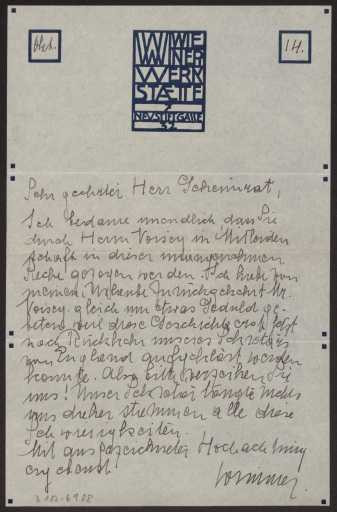 W W WIE
WW NER
WERK
STÆTTE
7
NEUSTIFTGASSE
32
14.
Sehr geehrter Herr Geheimrat,
Ich bedaure unendlich dass Sie
durch Herrn Voisey in Mitleiden
schaft in dieser unangenehmen
Sache gezogen werden. Ich habe von
meinem Urlaube zurückgekehrt Mr.
Voisey gleich um etwas Geduld ge-
beten, weil diese Geschichte erst jetzt
nach Rückkehr unseres Sekretärs
von England aufgeklärt werden
konnte. Also bitte verzeihen Sie
uns! Unser Sekretär
uns daher stammen alle diese
Schwierigkeiten.
Mit ausgezeichneter Hochachtung
ergebenst